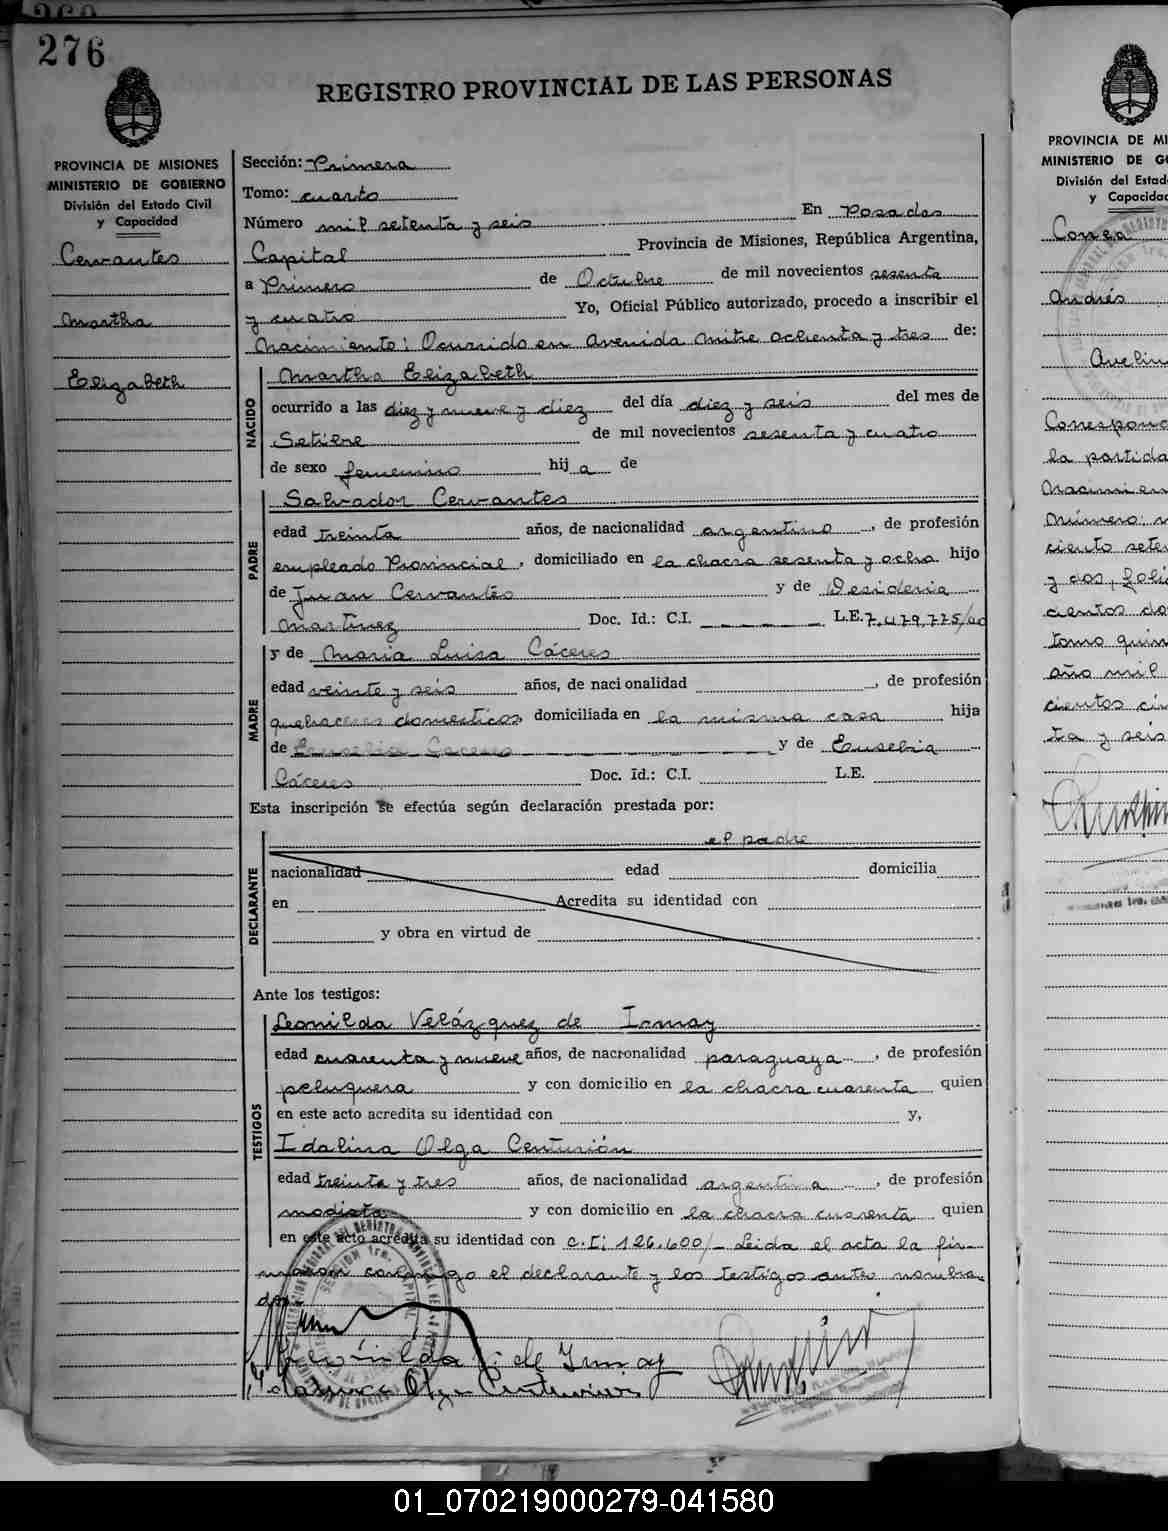 276
REGISTRO PROVINCIAL DE LAS PERSONAS
PROVINCIA DE MISIONES
MINISTERIO DE GOBIERNO
División del Estado Civil
y Capacidad
Cervantes
Martha
Elizabeth
Sección: Primera
Tomo: cuarto
Número mil setenta y seis En Posadas
Capital Provincia de Misiones, República Argentina,
a Primero de Octubre de mil novecientos sesenta
y cuatro Yo, Oficial Público autorizado, procedo a inscribir el
Nacimiento: Ocurrido en Avenida Mitre ochenta y tres de:
NACIDO
Martha Elizabeth
ocurrido a las diez y nueve y diez del día diez y seis del mes de
Setiembre de mil novecientos sesenta y cuatro
de sexo femenino hija de
PADRE
Salvador Cervantes
edad treinta años, de nacionalidad argentino, de profesión
empleado Provincial, domiciliado en la chacra sesenta y ocho hijo
de Juan Cervantes y de Desideria
Martinez Doc. Id.: C.I. L.E. 7.479.775/
MADRE
y de Maria Luisa Cáceres
edad veinte y seis años, de nacionalidad , de profesión
quehaceres domesticos domiciliada en la misma casa hija
de Caceres y de Eusebia
Cáceres Doc. Id.: C.I. L.E.
Esta inscripción se efectúa según declaración prestada por:
DECLARANTE
el padre
nacionalidad edad domicilia
en Acredita su identidad con
y obra en virtud de
Ante los testigos:
TESTIGOS
Leonilda Velázquez de Irmay
edad cuarenta y nueve años, de nacionalidad paraguaya, de profesión
peluquera y con domicilio en la chacra cuarenta quien
en este acto acredita su identidad con y,
Idalina Olga Centurión
edad treinta y tres años, de nacionalidad argentina, de profesión
modista y con domicilio en la chacra cuarenta quien
en este acto acredita su identidad con C.I: 126.600/- Leida el acta la fir-
maron conmigo el declarante y los testigos antes nombra-
dos-
de Irmay
Olga Centurión
PROVINCIA DE MI
MINISTERIO DE G
División del Estad
y Capacidad
Correa
Andrés
Avelin
Correspond
la partida
Nacimien
Número:
ciento sete
y dos, foli
cientos do
tomo quin
año mil
cientos cin
ta y seis
01_070219000279-041580